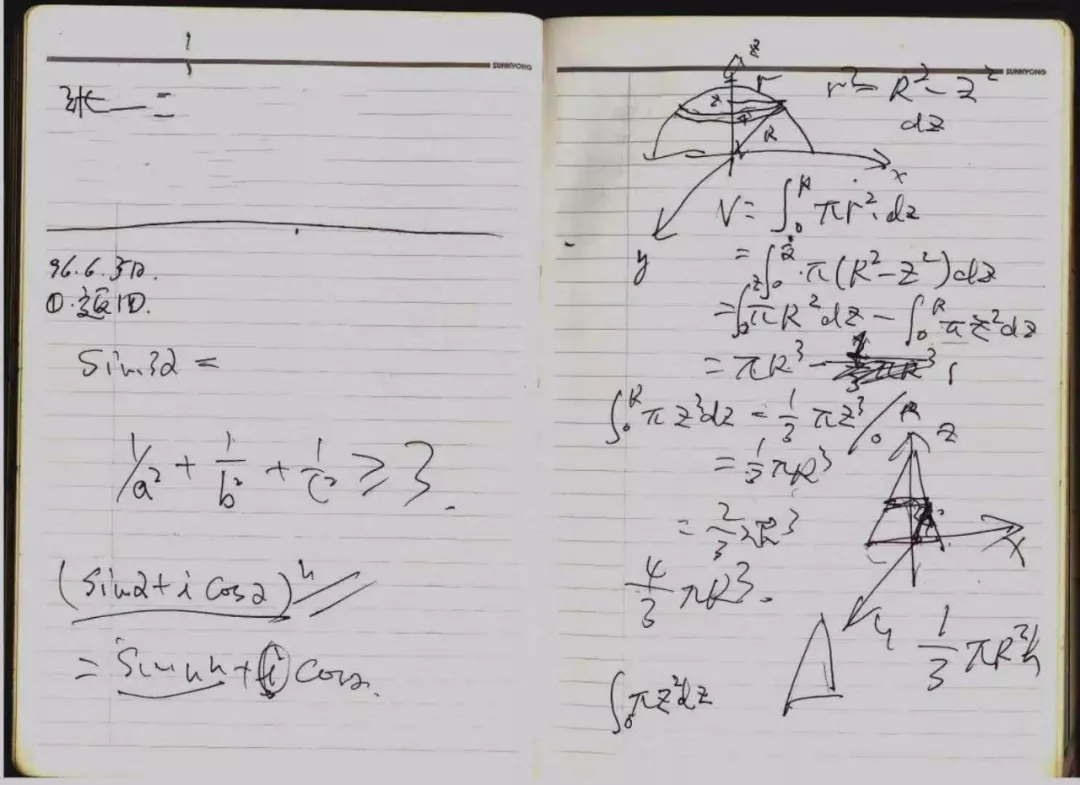 SUNKYONG
96.6.5日.
Sin3α =
1/a² + 1/b² + 1/c² ≥ 3.
(Sinα + i Cosα)ⁿ
SUNKYONG
z
r
r² = R² - z²
dz
z
R
x
y
V = ∫₀ᴿ πr²·dz
= ∫₀ᴿ π(R²-z²)dz
= ∫₀ᴿ πR²dz - ∫₀ᴿ πz²dz
= πR³ -
∫₀ᴿ πz²dz = 1/3 πz³ / ₀ᴿ
= 1/3 πR³
z
= 2/3 πR³
x
4/3 πR³.
y
1/3 πR²h
∫₀ πz²dz